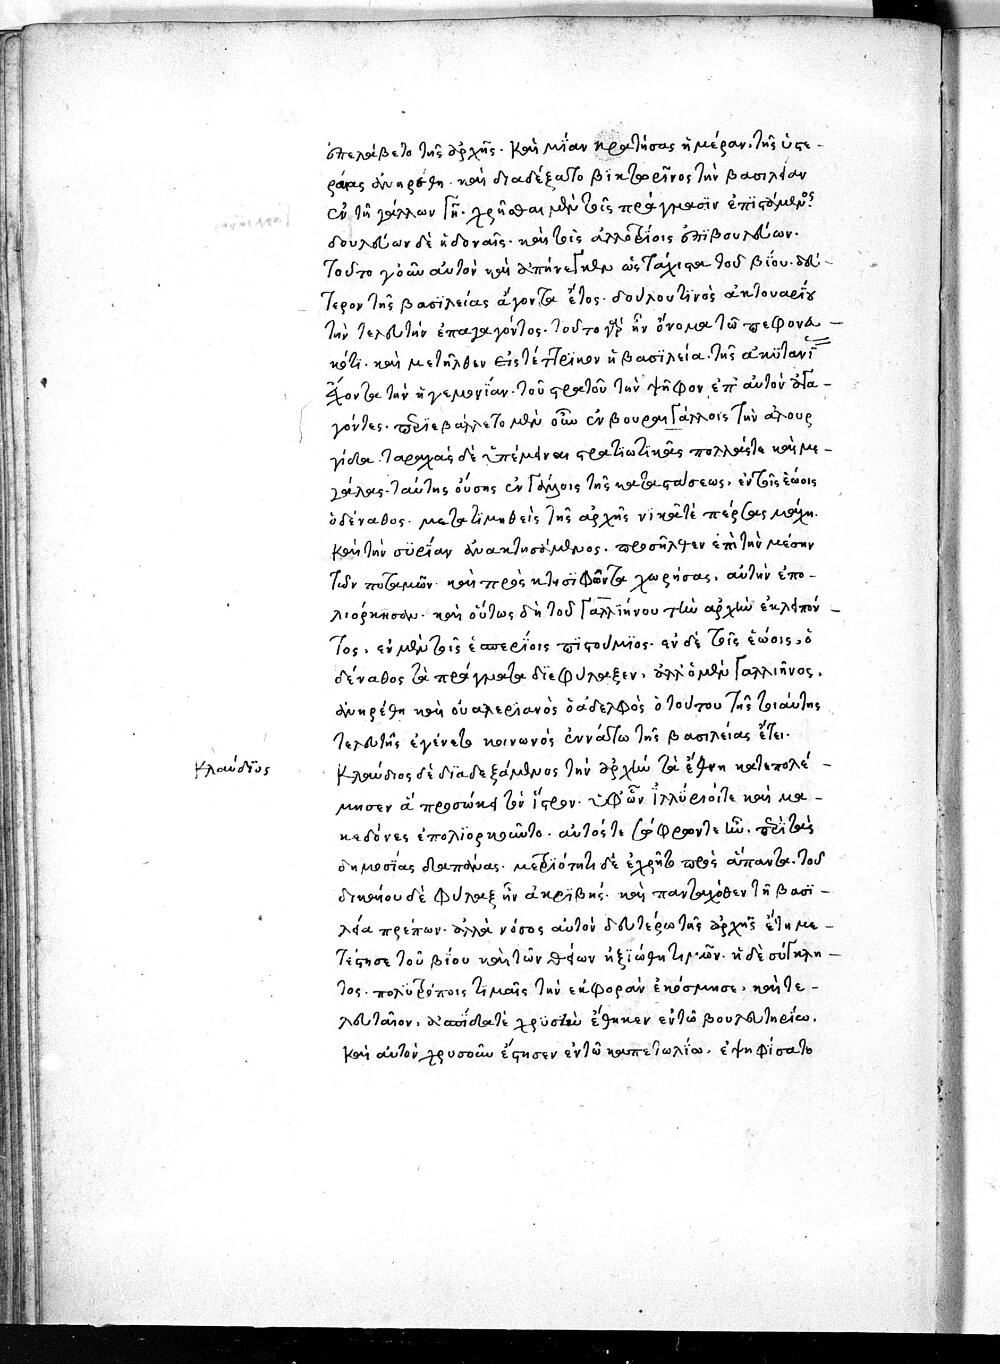 ἐπελάβετο τῆς ἀρχῆς. καὶ μίαν κρατήσας ἡμέραν, τῆς ὑστε-
ραίας ἀνηρέθη. καὶ διαδέξατο βικτωρῖνος τὴν βασιλείαν
ἐν τῇ γάλλων γῇ. χρῆσθαι μὲν τοῖς πράγμασϊν ἐπϊστάμενος.
δουλεύων δὲ ἡδοναῖς. καὶ τοῖς ἀλλοτρίοις ἐπϊβουλεύων.
τοῦτο γοῦν αὐτὸν καὶ ἀπήνεγκεν ὡς τάχιστα τοῦ βίου. δεύ-
τερον τῆς βασϊλείας ἄγοντα ἔτος. δούλου τϊνὸς ἀκτουαρΐου
τὴν τελευτὴν ἐπαγαγόντος. τοῦτο γὰρ ἦν ὄνομα τῶ πεφονευ-
κότϊ. καὶ μετῆλθεν εἰς τέτρϊκον ἡ βασϊλεία. τῆς ἀκϋτανΐ
ἔχοντα τὴν ἡγεμονΐαν. τοῦ στρατοῦ τὴν ψῆφον ἐπ' αὐτὸν ἀγα-
γόντες. περιεβάλλετο μὲν οὖν ἐν βουρδιγάλλοις τὴν ἁλουρ
γίδα. ταραχὰς δὲ ὑπέμεινε στρατϊωτϊκὰς πολλάς τε καὶ με-
γάλας. ταύτης οὔσης ἐν γάλλοις τῆς καταστάσεως, ἐν τοῖς ἑώοις
ὀδέναθος. μετατϊμηθεὶς τῆς ἀρχῆς νϊκᾶ τε πέρσας μάχη.
καὶ τὴν συρΐαν ἀνακτησάμενος. προσῆλθεν ἐπὶ τὴν μέσην
τῶν ποταμῶν. καὶ πρὸς κτησϊφῶντα χωρήσας, αὐτὴν ἐπο-
λιόρκησεν. καὶ οὕτως δὴ τοῦ γαλλϊήνου τὴν ἀρχὴν ἐκλϊπόν-
τος, ἐν μὲν τοῖς ἑσπερΐοις ποστούμϊος. ἐν δὲ τοῖς ἑώοις, ὁ
δέναθος τὰ πράγματα διεφύλαξεν, ἀλλ' ὁ μὲν γαλλιῆνος,
ἀνηρέθη καὶ οὐαλερϊανὸς ὁ ἀδελφὸς ὁ τούτου τῆς τοιαύτης
τελευτῆς ἐγένετο κοινωνὸς ἐννάτω τῆς βασϊλείας ἔτει.
Κλαύδϊος
κλαύδιος δὲ διαδεξάμενος τὴν ἀρχὴν τὰ ἔθνη κατεπολέ-
μησεν ἃ προσώκει τὸν ἴστρον. ὑφ' ὧν ἰλλϋρϊοί τε καὶ μα-
κεδόνες ἐπολϊορκοῦντο. αὐτός τε σώφρων τε ἦν. περὶ τὰς
δημοσΐας δαπάνας. μετρϊότητι δὲ ἐχρῆτο πρὸς ἅπαντα. τοῦ
δικαίου δὲ φύλαξ ἦν ἀκρϊβής. καὶ πανταχόθεν τῇ βασϊ-
λεία πρέπων. ἀλλὰ νόσος αὐτὸν δευτέρω τῆς ἀρχῆς ἔτη με-
τέστησε τοῦ βίου καὶ τῶν θείων ἠξϊώθη τιμῶν. ἡ δὲ σύγκλη-
τος. πολϋτρόποις τϊμαῖς τὴν ἐκφορὰν ἐκόσμησε, καὶ τε-
λευταῖον, ἀσπίδα τε χρυσῆν ἔθηκεν ἐν τῶ βουλευτηρίω.
καὶ αὐτὸν χρυσοῦν ἔστησεν ἐν τῶ καπετωλίω. ἐψηφίσατο